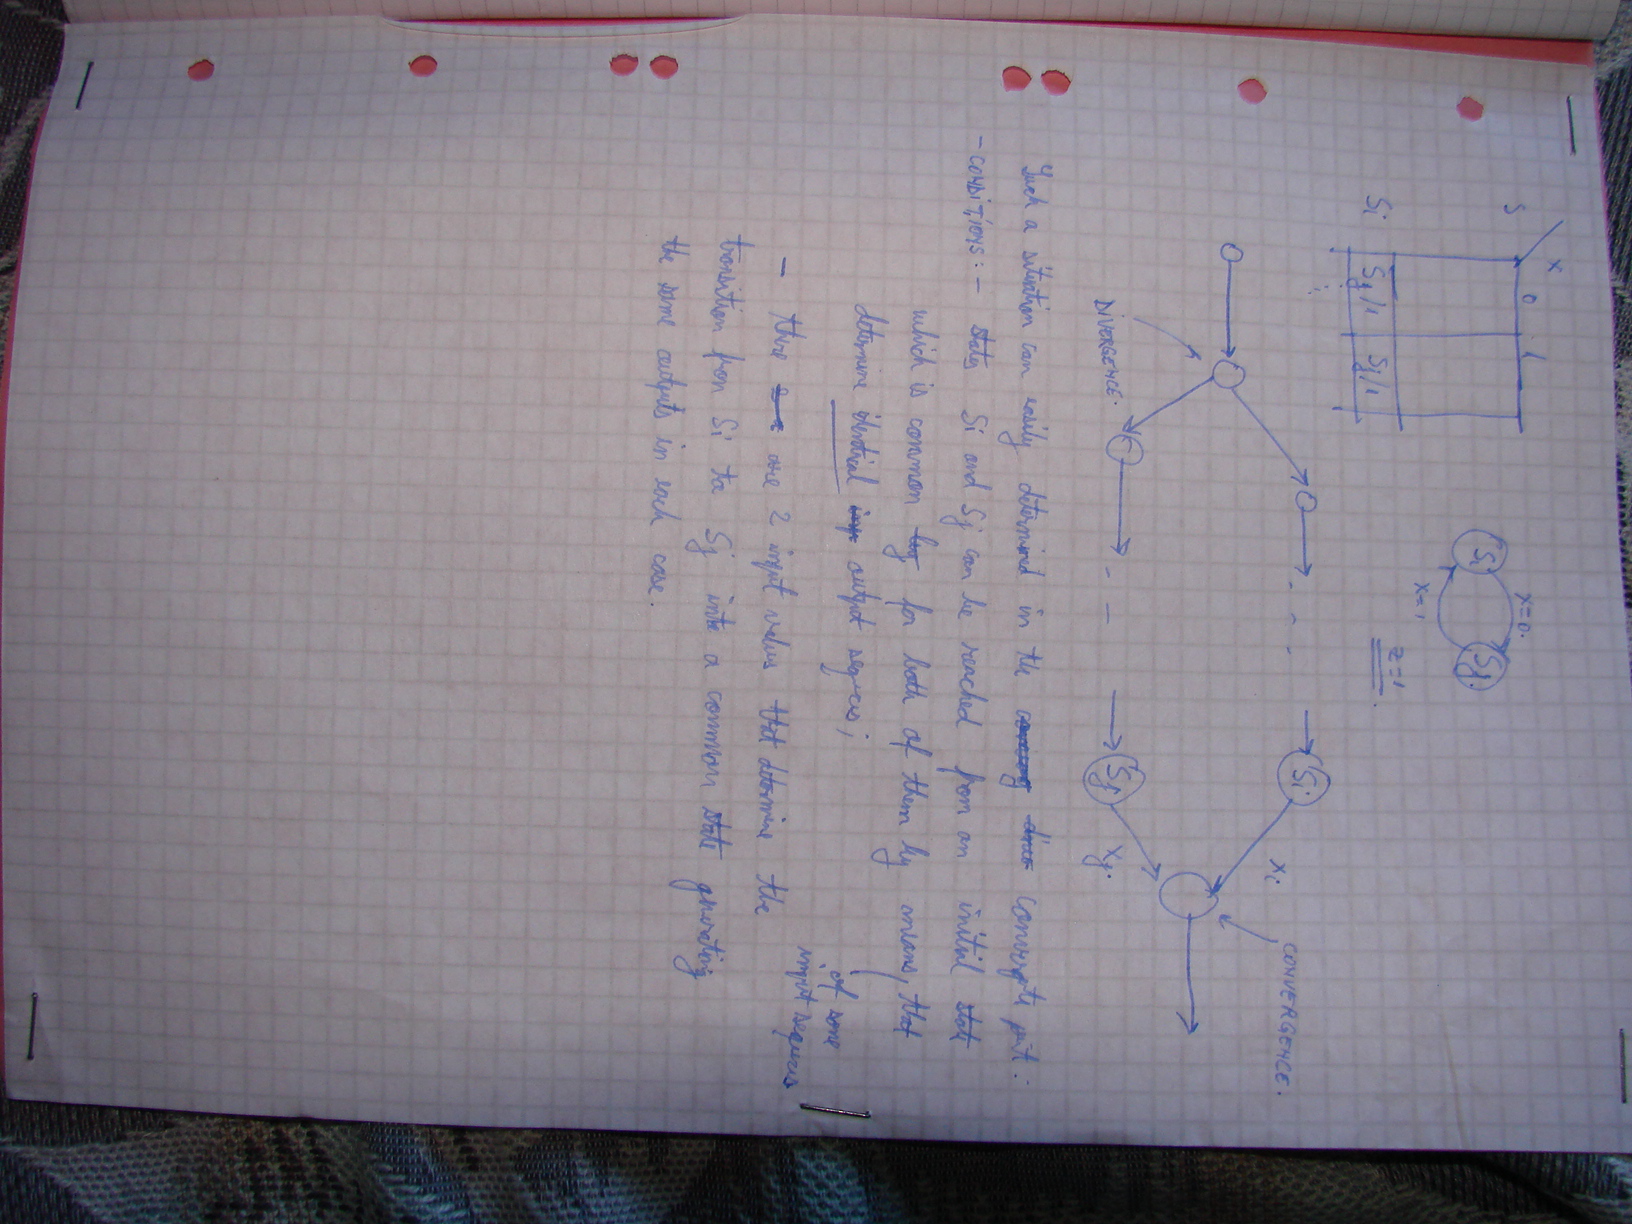 S X 0 1
Si Sj/1 Sj/1
Si X=0. Sj.
X=1
z=1.
Si. Xi CONVERGENCE.
DIVERGENCE. Sj Xj.
Such a situation can easily determined in the convergente point:
- CONDITIONS: - states Si and Sj can be reached from an initial state
which is common by for both of them by means, that
determine identical inp output sequences; of some
input sequences
- there are 2 input values that determine the
transition from Si to Sj into a common state generating
the same outputs in each case.